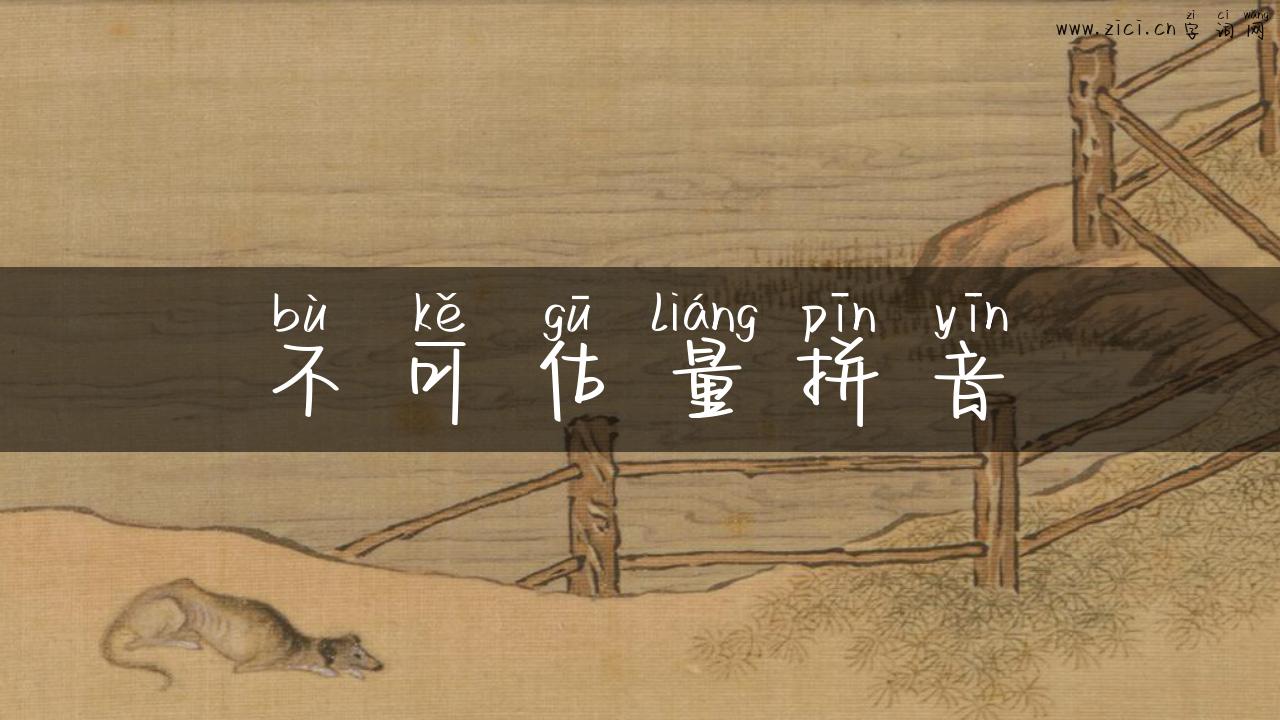 zì cí wǎng
www.zici.cn 字词网
bù kě gū liáng pīn yīn
不可估量拼音